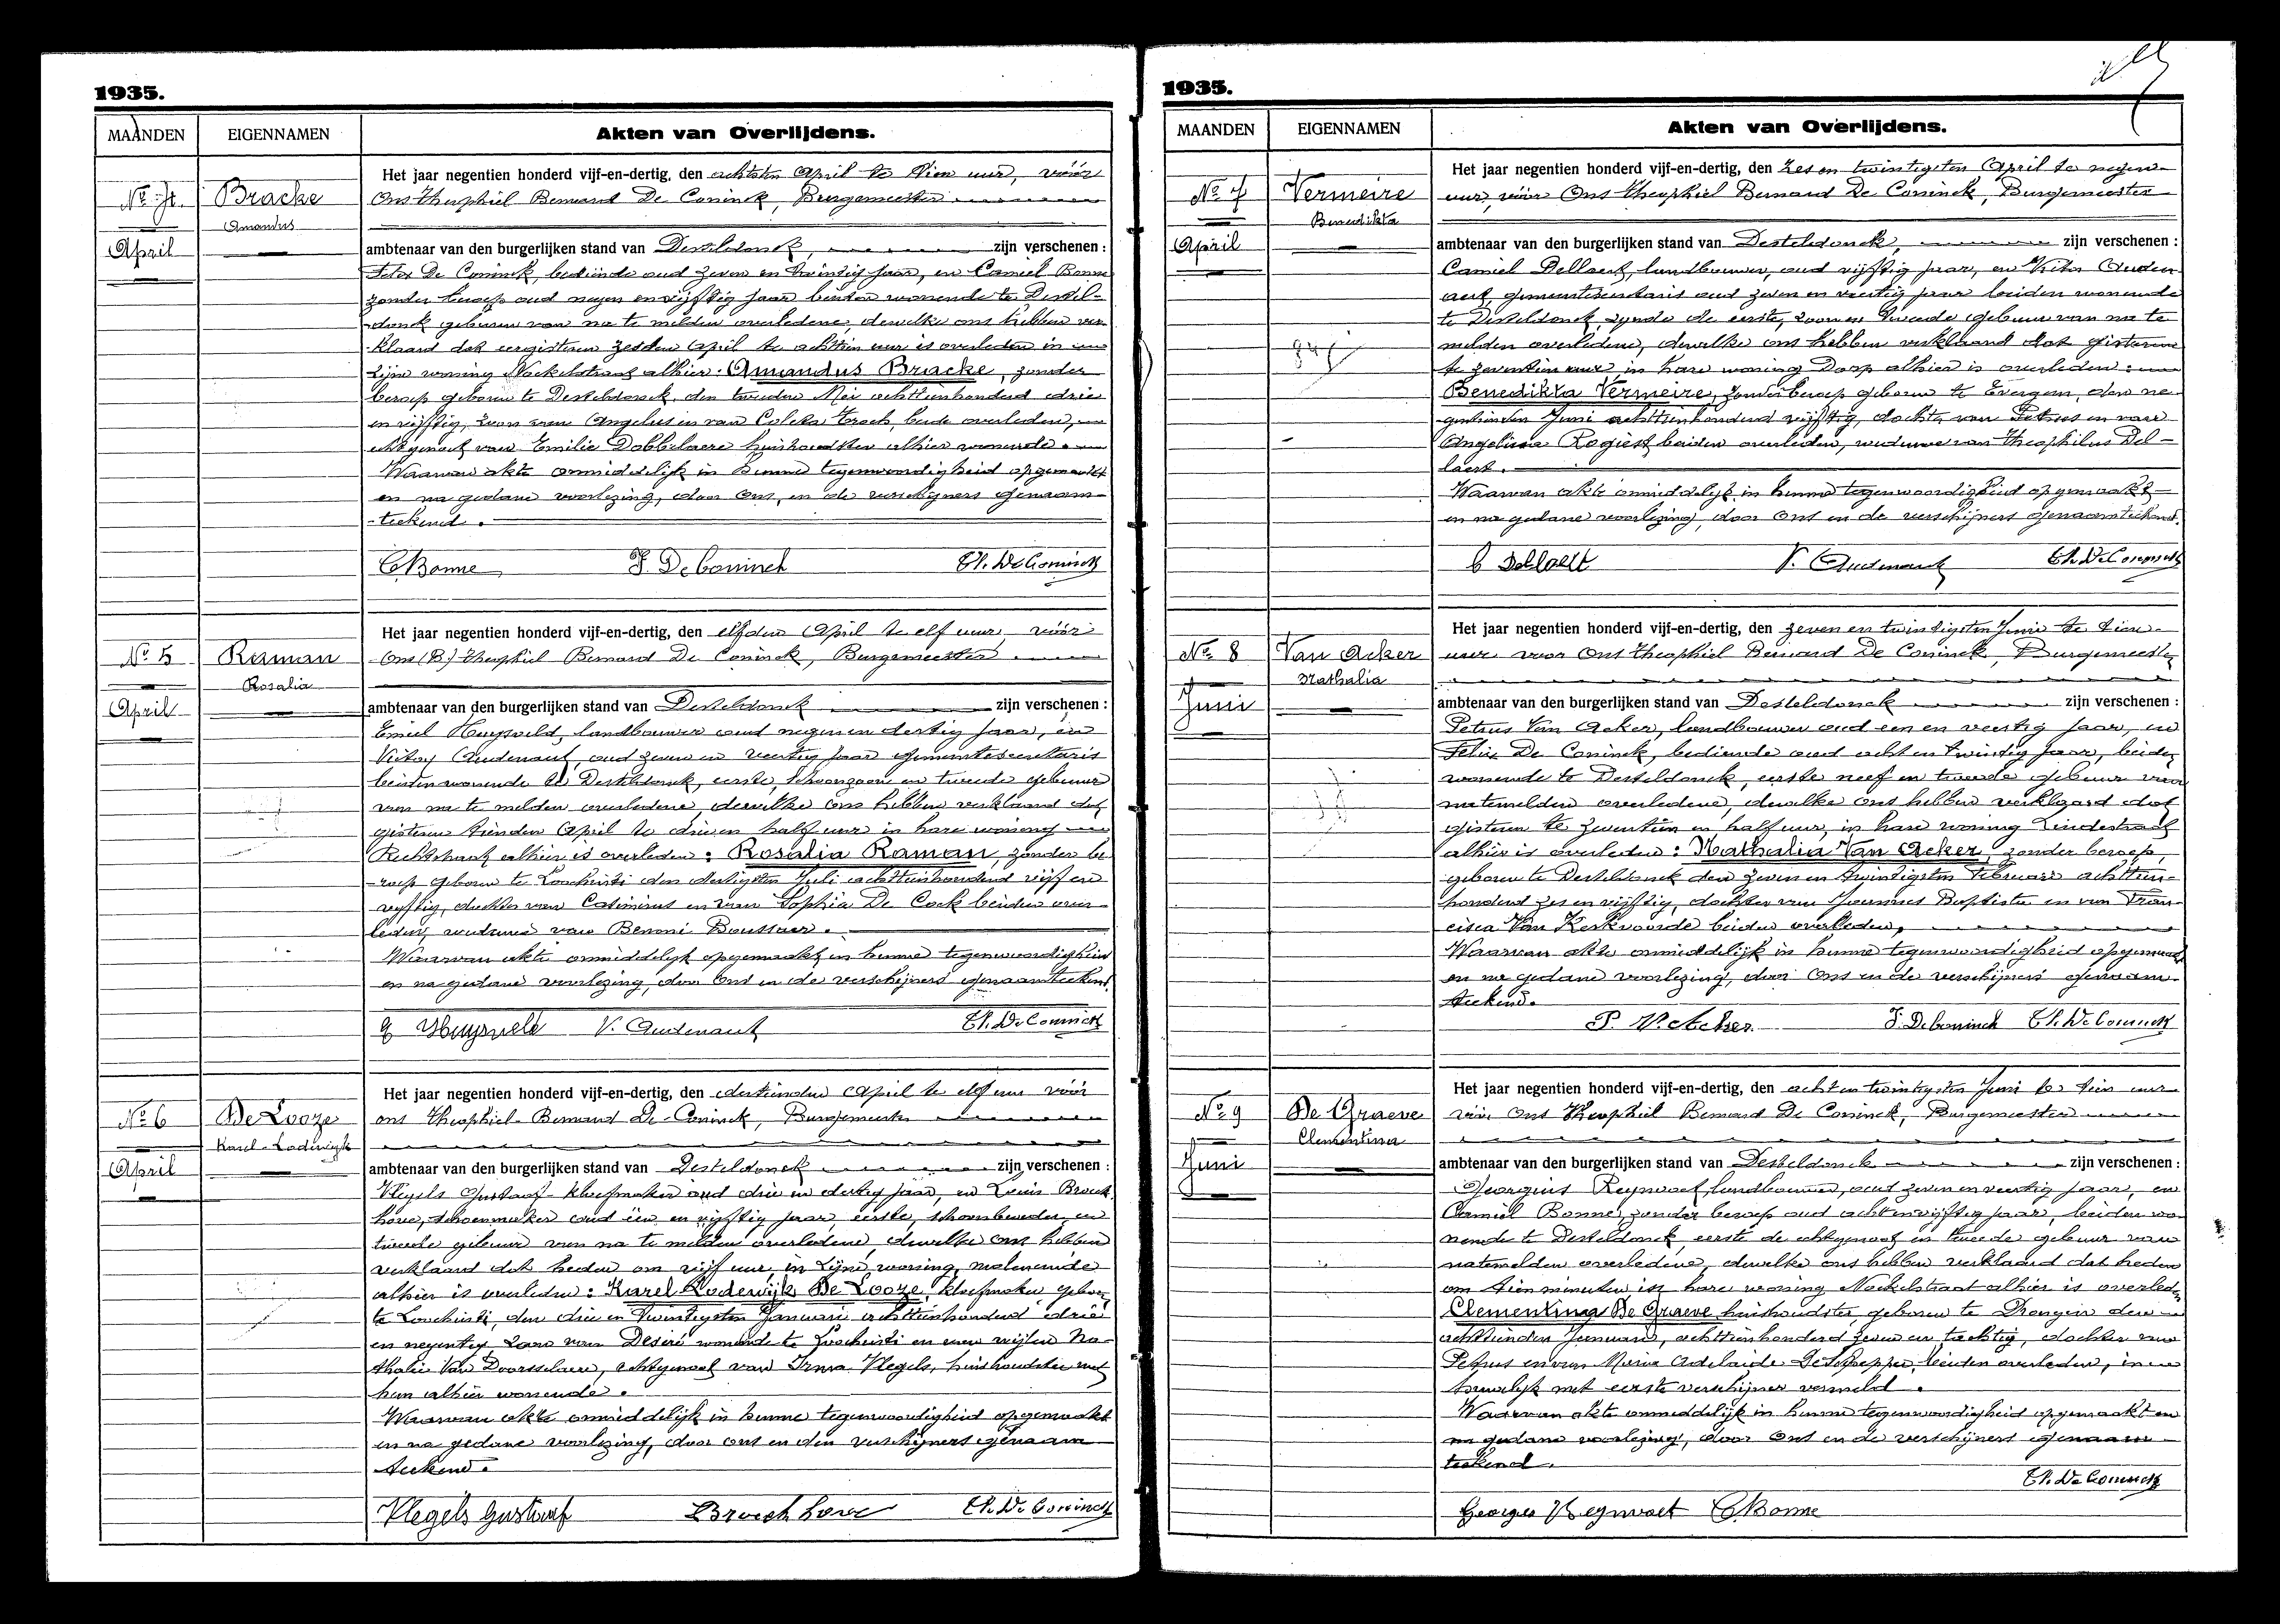 1935.
MAANDEN
EIGENNAMEN
Akten van Overlijdens.
Nº 4.
Bracke
Amandus
April
Het jaar negentien honderd vijf-en-dertig, den achtsten April te tien uur, vóór
Ons Theophiel Bernard De Coninck, Burgemeester
ambtenaar van den burgerlijken stand van Desteldonck, zijn verschenen :
Felix De Coninck, bediende oud zeven en twintig jaar, en Camiel Bonne
zonder beroep oud negen en vijftig jaar beiden wonende te Destel-
donck gebuuren van na te melden overledene, dewelke ons hebben ver-
klaard dat eergisteren zesden April te achttien uur is overleden in
zijne woning Neckelstraat alhier: Amandus Bracke, zonder
beroep geboren te Desteldonck, den tweeden Mei achttienhonderd drie
en vijftig, zoon van Angelus en van Coleta Troch, beide overleden,
echtgenoot van Emilie Dobbelaere huishoudster alhier wonende.
Waarvan akte onmiddelijk in hunne tegenwoordigheid opgemaakt
en na gedane voorlezing, door Ons, en de verschijners genaam-
teekend.
C Bonne F. De Coninck Th. De Coninck
Nº 5
Raman
Rosalia
April
Het jaar negentien honderd vijf-en-dertig, den elfden April te elf uur, vóór
Ons (B) Theophiel Bernard De Coninck, Burgemeester
ambtenaar van den burgerlijken stand van Desteldonck zijn verschenen :
Emiel Huysveld, landbouwer oud negen en dertig jaar, en
Victor Audenaert, oud zeven en veertig jaar gemeentesecretaris
beiden wonende te Desteldonck, eerste, schoonzoon en tweede gebuur
van na te melden overledene, dewelke ons hebben verklaard dat
gisteren tienden April te drie en half uur in hare woning
Rechtstraat alhier is overleden: Rosalia Raman, zonder be-
roep geboren te Loochristi den dertigsten Juli achttienhonderd vijf en
vijftig, dochter van Casimirus en van Sophia De Cock beiden over-
leden, weduwe van Benoni Boussaer.
Waarvan akte onmiddelijk opgemaakt in hunne tegenwoordigheid
en na gedane voorlezing, door Ons en de verschijners genaamteekend.
E Huysveld V. Audenaert Th. De Coninck
Nº 6
De Looze
Karel-Lodewijk
April
Het jaar negentien honderd vijf-en-dertig, den dertienden April te elf uur vóór
ons Theophiel Bernard De Coninck, Burgemeester
ambtenaar van den burgerlijken stand van Desteldonck zijn verschenen :
Vlegels Gustaaf kloefmaker oud drie en dertig jaar, en Louis Broeck
hove, schoenmaker oud een en vijftig jaar, eerste, schoonbroeder en
tweede gebuur van na te melden overledene, dewelke ons hebben
verklaard dat heden om vijf uur, in zijne woning, moleneinde
alhier is overleden: Karel Lodewijk De Looze, kloefmaker geboren
te Loochristi, den drie en twintigsten Januari achttienhonderd drie
en negentig zoon van Désiré wonende te Loochristi en van wijlen Na-
thalie Van Doorsselaere, echtgenoot van Irma Vlegels, huishoudster met
hem alhier wonende.
Waarvan akte onmiddelijk in hunne tegenwoordigheid opgemaakt
en na gedane voorlezing, door ons en den verschijners genaam
teekend.
Vlegels Gustaaf Broeckhove Th. De Coninck
1935.
MAANDEN
EIGENNAMEN
Akten van Overlijdens.
Nº 7
Vermeire
Benedikta
April
Het jaar negentien honderd vijf-en-dertig, den zes en twintigsten April te negen
uur, vóór Ons Theophiel Bernard De Coninck, Burgemeester
ambtenaar van den burgerlijken stand van Desteldonck, zijn verschenen :
Camiel Dellaert, landbouwer, oud vijftig jaar, en Victor Auden
aert, gemeentesecretaris oud zeven en veertig jaar beiden wonende
te Desteldonck, zijnde de eerste, zoon en tweede gebuur van na te
melden overledene, dewelke ons hebben verklaard dat gisteren
te zeventien uur, in hare woning Dorp alhier is overleden:
Benedikta Vermeire, zonder beroep geboren te Evergem, den ne-
gentienden Juni achttienhonderd vijftig, dochter van Petrus en van
Angelina Rogiest beiden overleden, weduwe van Theophilus Del-
laert.
Waarvan akte onmiddelijk in hunne tegenwoordigheid opgemaakt
en na gedane voorlezing, door Ons en de verschijners genaamteekend.
C Dellaert V. Audenaert Th. De Coninck
Nº 8
Van Acker
Nathalia
Juni
Het jaar negentien honderd vijf-en-dertig, den zeven en twintigsten Juni te tien
uur voor Ons Theophiel Bernard De Coninck, Burgemeester
ambtenaar van den burgerlijken stand van Desteldonck zijn verschenen :
Petrus Van Acker, landbouwer oud een en veertig jaar, en
Felix De Coninck, bediende oud acht en twintig jaar, beiden
wonende te Desteldonck, eerste neef en tweede gebuur van
natemelden overledene, dewelke ons hebben verklaard dat
gisteren te zeventien en half uur, in hare woning Lindestraat
alhier is overleden: Nathalia Van Acker, zonder beroep,
geboren te Desteldonck den zeven en twintigsten Februari achttien-
honderd zes en vijftig, dochter van Joannes Baptista en van Fran-
cisca Van Kerkvoorde beiden overleden,
Waarvan akte onmiddelijk in hunne tegenwoordigheid opgemaakt
en na gedane voorlezing, door Ons en de verschijners genaam-
teekend.
P. V. Acker F. De Coninck Th. De Coninck
Nº 9
De Graeve
Clementina
Juni
Het jaar negentien honderd vijf-en-dertig, den acht en twintigsten Juni te tien uur
vóór Ons Theophiel Bernard De Coninck, Burgemeester
ambtenaar van den burgerlijken stand van Desteldonck zijn verschenen :
Georgius Reynvoet, landbouwer, oud zeven en veertig jaar, en
Camiel Bonne, zonder beroep oud acht en vijftig jaar, beiden wo-
nende te Desteldonck, eerste de echtgenoot en tweede gebuur van
natemelden overledene, dewelke ons hebben verklaard dat heden
om tien minuten in hare woning Neckelstraat alhier is overleden
Clementina De Graeve huishoudster, geboren te Drongen den
achttienden Januari, achttienhonderd zeven en tachtig, dochter van
Petrus en van Maria Adelaide De Schepper, beiden overleden, in
huwelijk met eerste verschijner vermeld.
Waarvan akte onmiddelijk in hunne tegenwoordigheid opgemaakt en
na gedane voorlezing, door Ons en de verschijners genaam-
teekend.
Th. De Coninck
Georges Reynvoet C Bonne